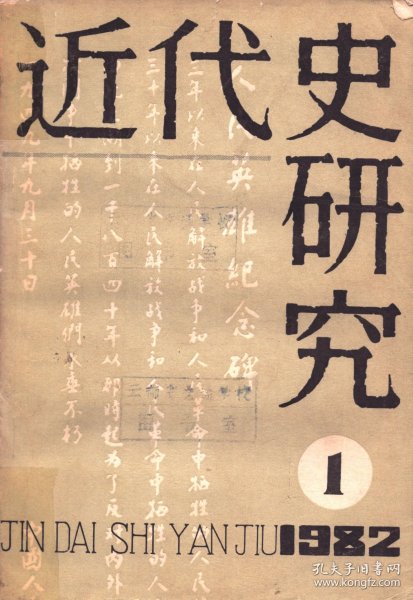 近代史
研究
人民英雄紀念碑
三年以来在人民解放战争和人民革命中牺牲的人民
三十年以来在人民解放战争和人民革命中牺牲的人
溯到一千八百四十年从那时起为了反对内外
中牺牲的人民英雄們永垂不朽
九四九年九月三十日
中国人
1
JIN DAI SHI YAN JIU 1982
孔夫子旧书网
www.kongfz.com